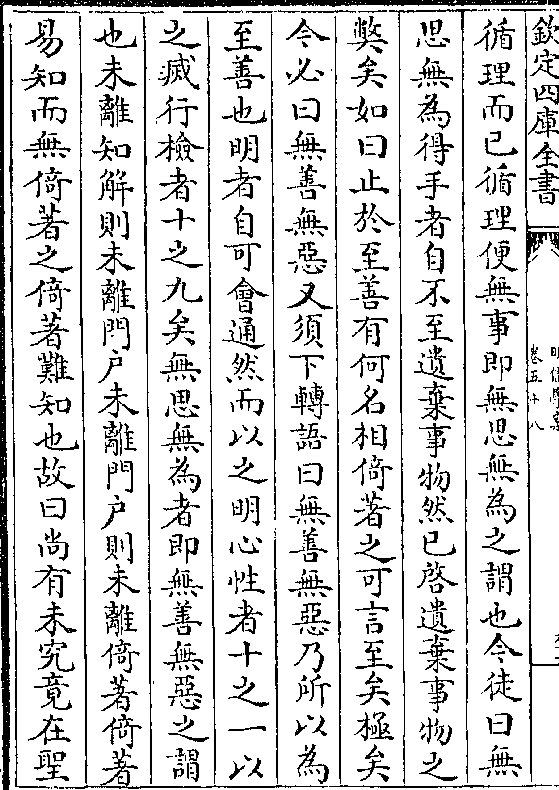 欽定四庫全書
明儒學案
卷五十八
循理而已循理便無事即無思無為之謂也今徒曰無
思無為得手者自不至遺棄事物然已啓遺棄事物之
弊矣如曰止於至善有何名相倚著之可言至矣極矣
今必曰無善無惡又須下轉語曰無善無惡乃所以為
至善也明者自可會通然而以之明心性者十之一以
之滅行檢者十之九矣無思無為者即無善無惡之謂
也未離知解則未離門户未離門户則未離倚著倚著
易知而無倚著之倚著難知也故曰尚有未究竟在聖